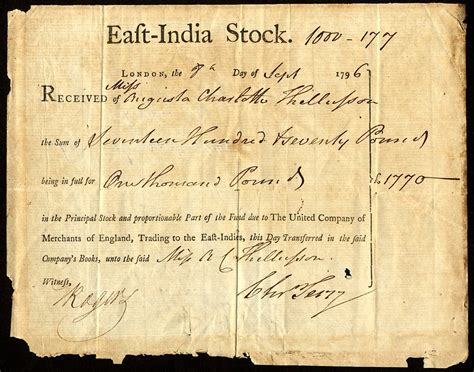 East-India Stock. 1000 - 177
London, the 8th Day of Sept 1796
Received of Miss Augusta Charlotte Thellusson
the Sum of Seventeen Hundred & seventy Pounds
being in full for One thousand Pounds £1770
in the Principal Stock and proportionable Part of the Fund due to The United Company of
Merchants of England, Trading to the East-Indies, this Day Transferred in the said
Company's Books, unto the said Miss A C Thellusson.
Witness,
Rogers
Chrs Terry